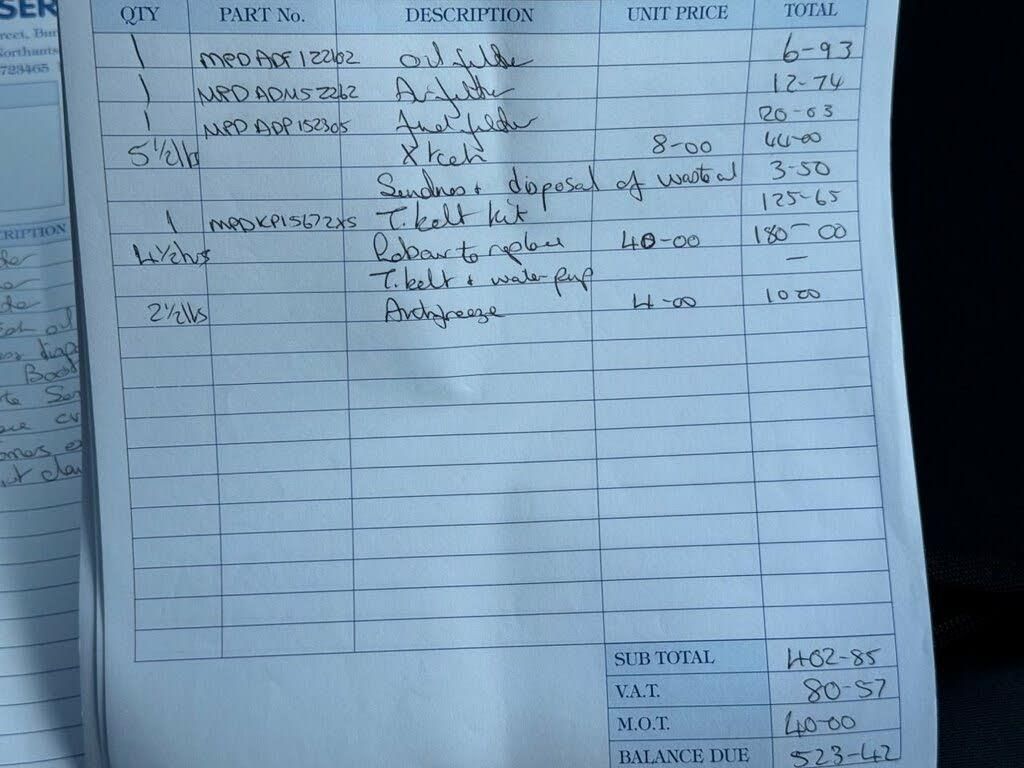 SER
reet, Bur
Northants
723465
RIPTION
QTY PART No. DESCRIPTION UNIT PRICE TOTAL
1 MPDADF122262 Oil filter 6-93
1 MPDADM52262 Air filter 12-74
1 MPDADP152305 fuel filter 20-03
5 1/2 lts 8-00 44-00
Sundries + disposal of waste oil 3-50
1 MPDKP15672XS T.belt kit 125-65
4 1/2 hrs Labour to replace 40-00 180-00
T.belt + water pump —
2 1/2 lts Antifreeze 4-00 10 00
SUB TOTAL 402-85
V.A.T. 80-57
M.O.T. 40-00
BALANCE DUE 523-42